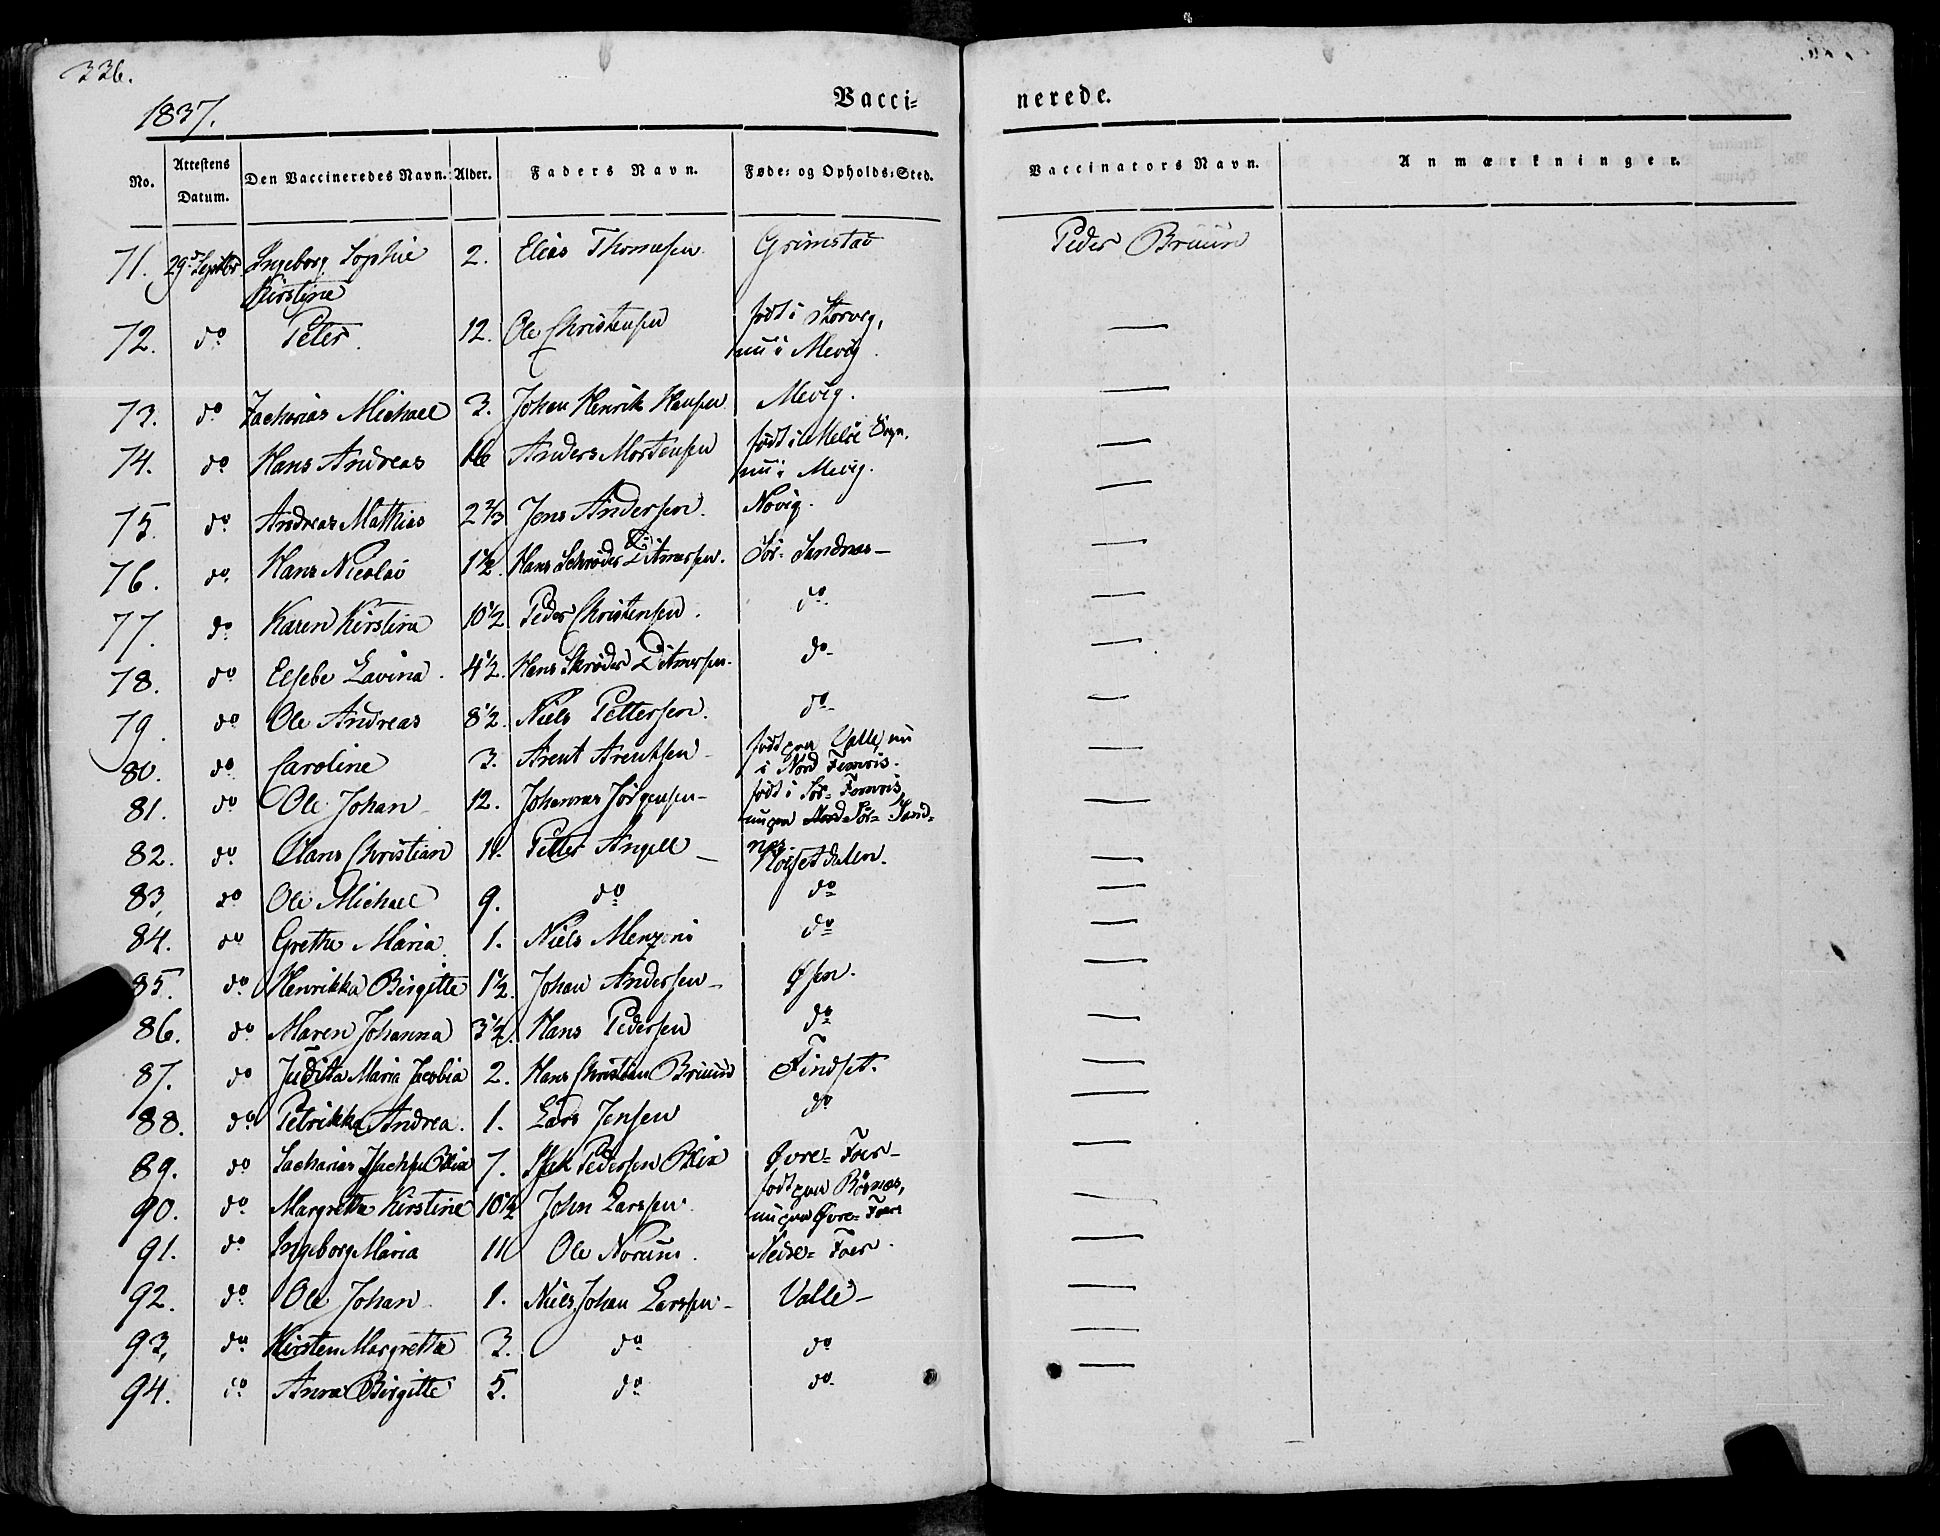 336.
1837.
Vacci=
nerede.
No. Attestens Datum. Den Vaccineredes Navn. Alder. Faders Navn. Føde= og Opholds=Sted. Vaccinators Navn. Anmærkninger.
71. 29de Septbr Ingeborg Sophie 2. Elias Thomesen Grimstad Peder Bruun
Kirstine
72. do Peter. 12. Ole Christensen født i Storvig, —
nu i Mevig.
73. do Zacharias Michael 3. Johan Henrik Hansen Mevig. —
74. do Hans Andreas 16 Anders Mortensen født i Melø Sogn, —
nu i Mevig.
75. do Andreas Mathias 2 2/3 Jens Andersen. Novig. —
76. do Hans Nicolai 1 1/2. Hans Schrøder Ditmersen. Sør= Sandnæs — —
77. do Karen Kirstina 10 1/2 Peder Christensen. do —
78. do Elsebe Lavina. 4 1/2. Hans Skrøder Ditmersen. do —
79. do Ole Andreas 8 1/2. Niels Pettersen. do —
80. do Caroline 3. Arent Arentsen født paa Valle, nu —
i Nord Fomris.
81. do Ole Johan 12. Johannes Jörgensen — født i Sør= Fomris, —
nu paa Sør= Sand=
næs.
82. do Hans Christian 11. Petter Angell — Noisetdalen. —
83, do Ole Michael 9. do do —
84. do Grethe Maria 1. Niels Menzoni do —
85. do Henrikka Birgitte 1 1/2. Johan Andersen — Øsen. —
86. do Maren Johanna 3 1/2. Hans Pedersen do —
87. do Juditta Maria Jacobia 2. Hans Christian Bruun Findset. —
88. do Petrikka Andrea. 1. Lars Jensen do —
89. do Sacharias Isachsen Blix 7. Isak Pedersen Blix Øvre= Foer — —
90. do Margretha Kirstine 10 1/2 John Larssen. født paa Börnæs, —
nu paa Øvre= Foer
91. do Ingeborg Maria 11 Ole Norum. Nedre= Foer. —
92. do Ole Johan 1. Niels Johan Larssen — Valle — —
93, do Kirsten Margretha 3. do do —
94. do Anna Birgitte 5. do do —